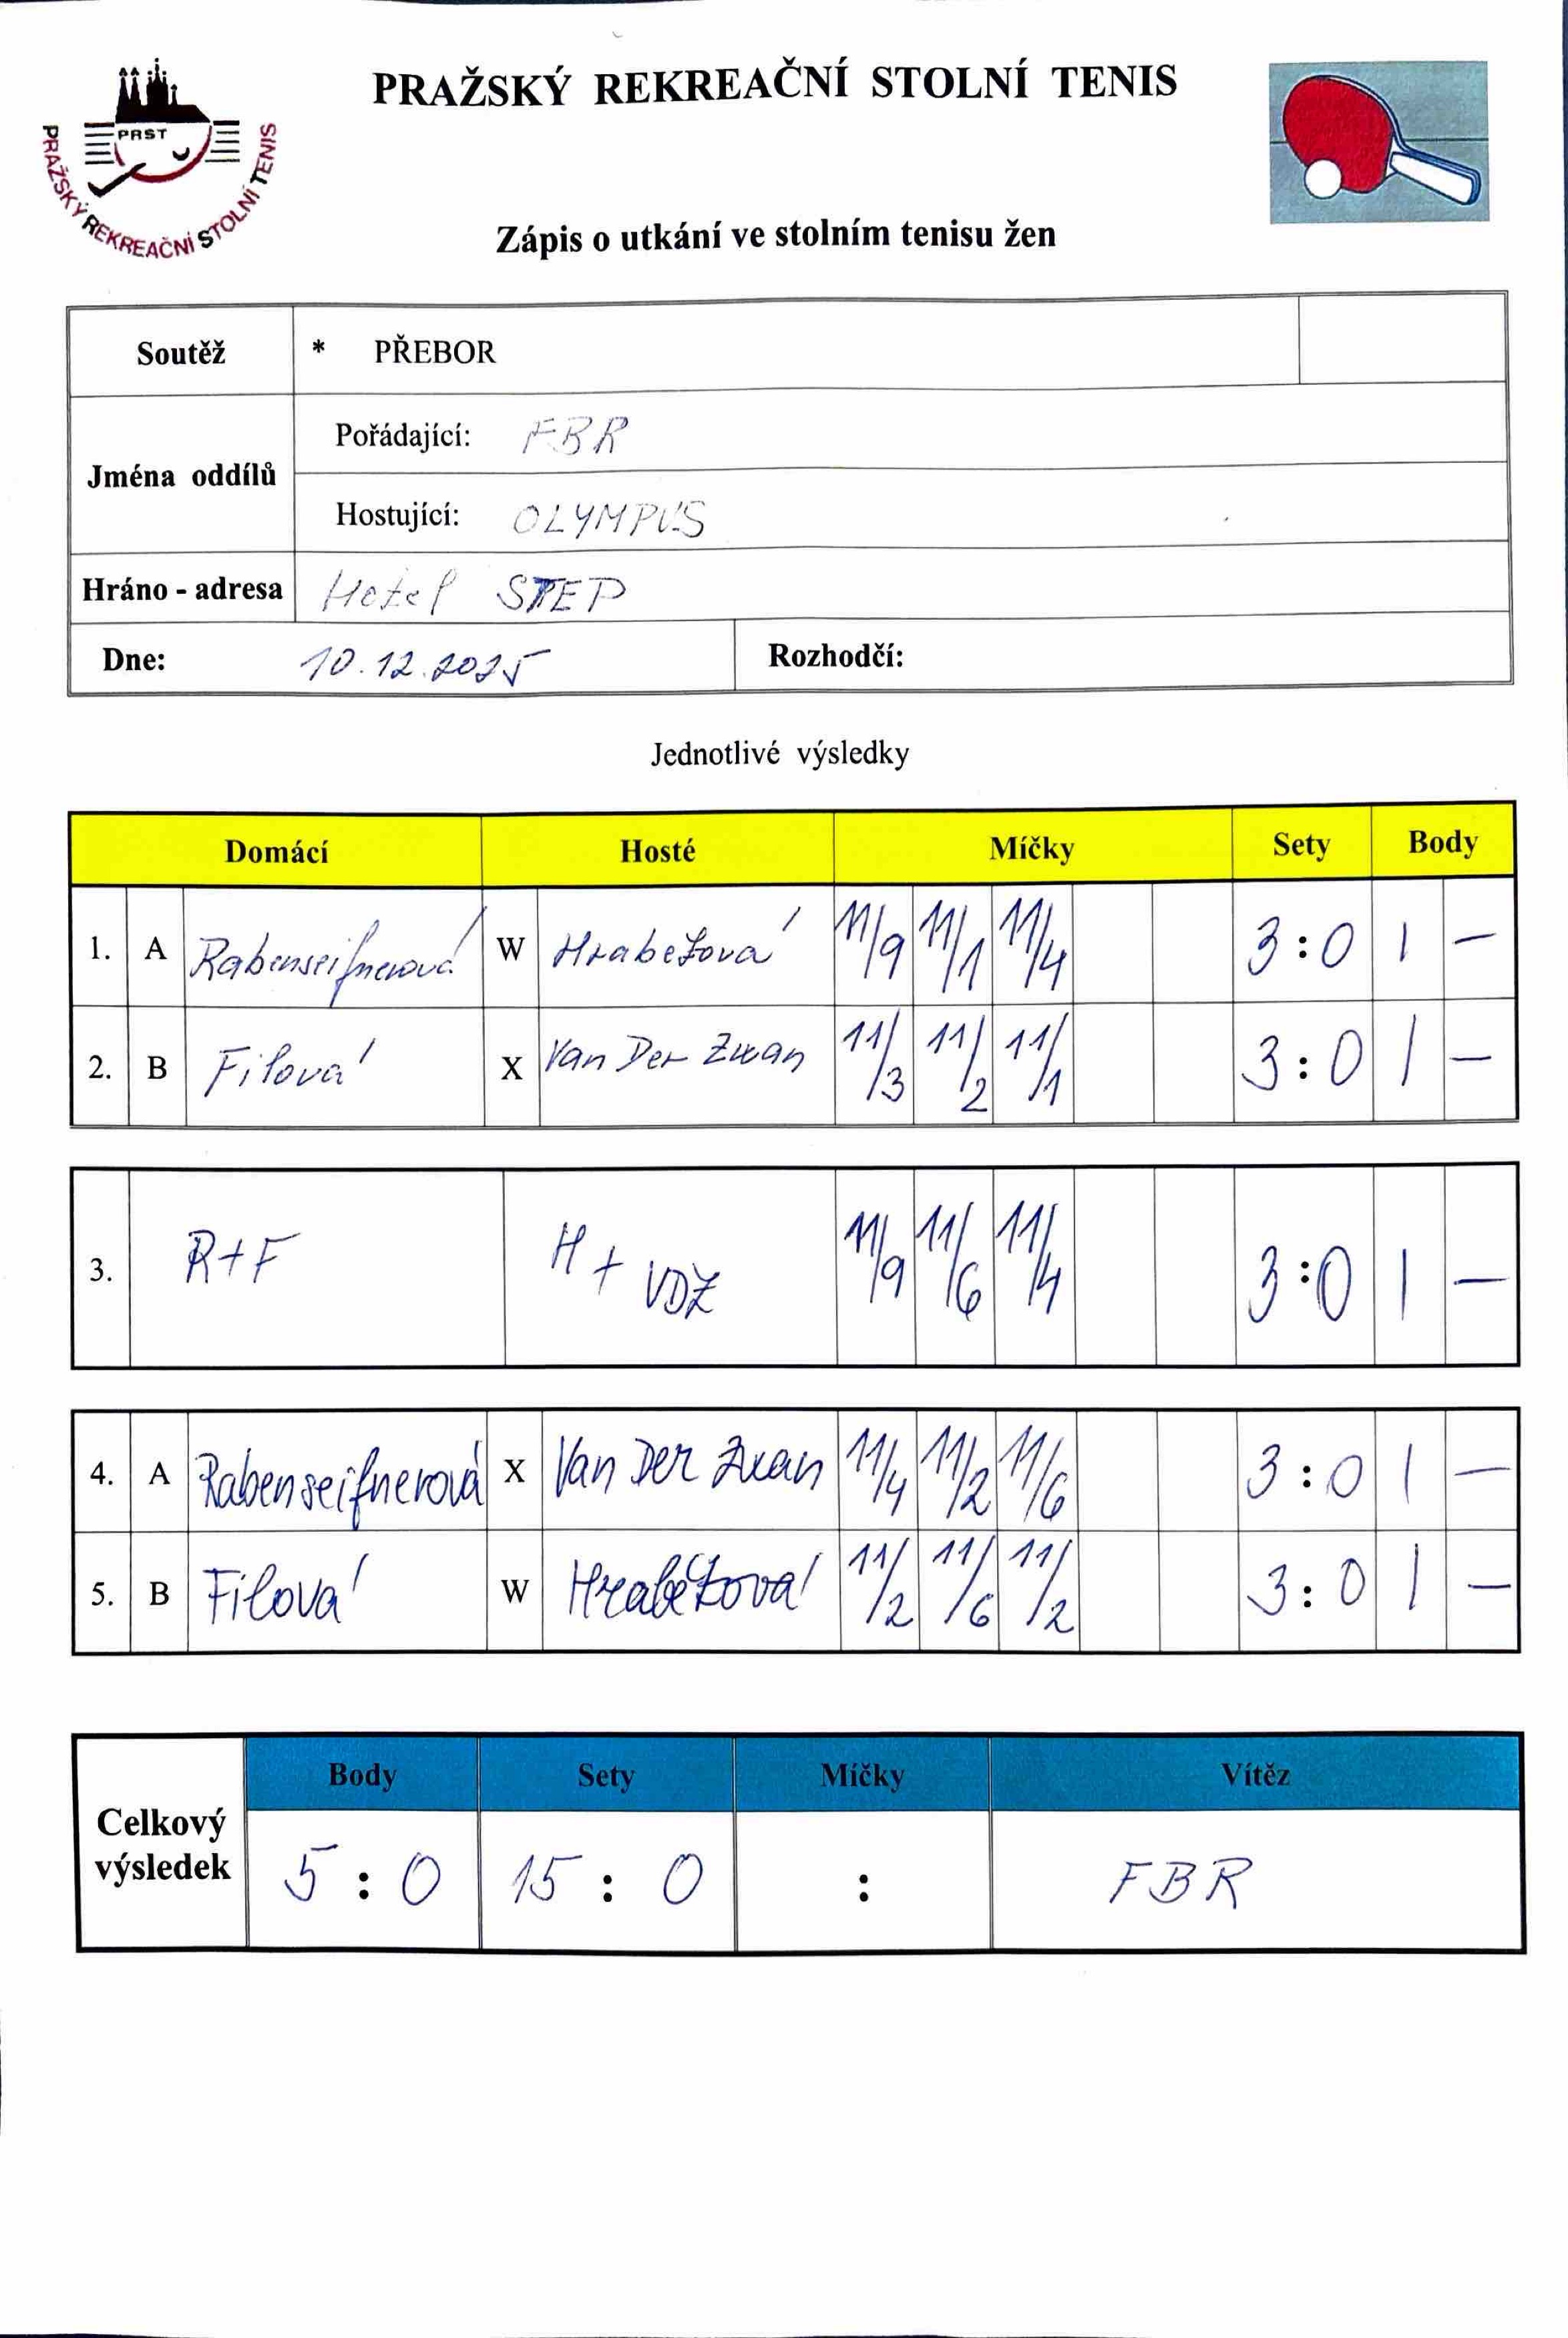 PRAŽSKÝ REKREAČNÍ STOLNÍ TENIS
PRST
PRAŽSKÝ REKREAČNÍ STOLNÍ TENIS
Zápis o utkání ve stolním tenisu žen
Soutěž * PŘEBOR
Jména oddílů
Pořádající: FBR
Hostující: OLYMPUS
Hráno - adresa Hotel STEP
Dne: 10.12.2025 Rozhodčí:
Jednotlivé výsledky
Domácí Hosté Míčky Sety Body
1. A Rabenseifnerová W Hrabětová 11/9 11/1 11/4 3:0 1 –
2. B Filová X Van Der Zwan 11/3 11/2 11/1 3:0 1 –
3. R+F H + VDZ 11/9 11/6 11/4 3:0 1 –
4. A Rabenseifnerová X Van Der Zwan 11/4 11/2 11/6 3:0 1 –
5. B Filová W Hrabětová 11/2 11/6 11/2 3:0 1 –
Celkový výsledek
Body Sety Míčky Vítěz
5 : 0 15 : 0 : FBR